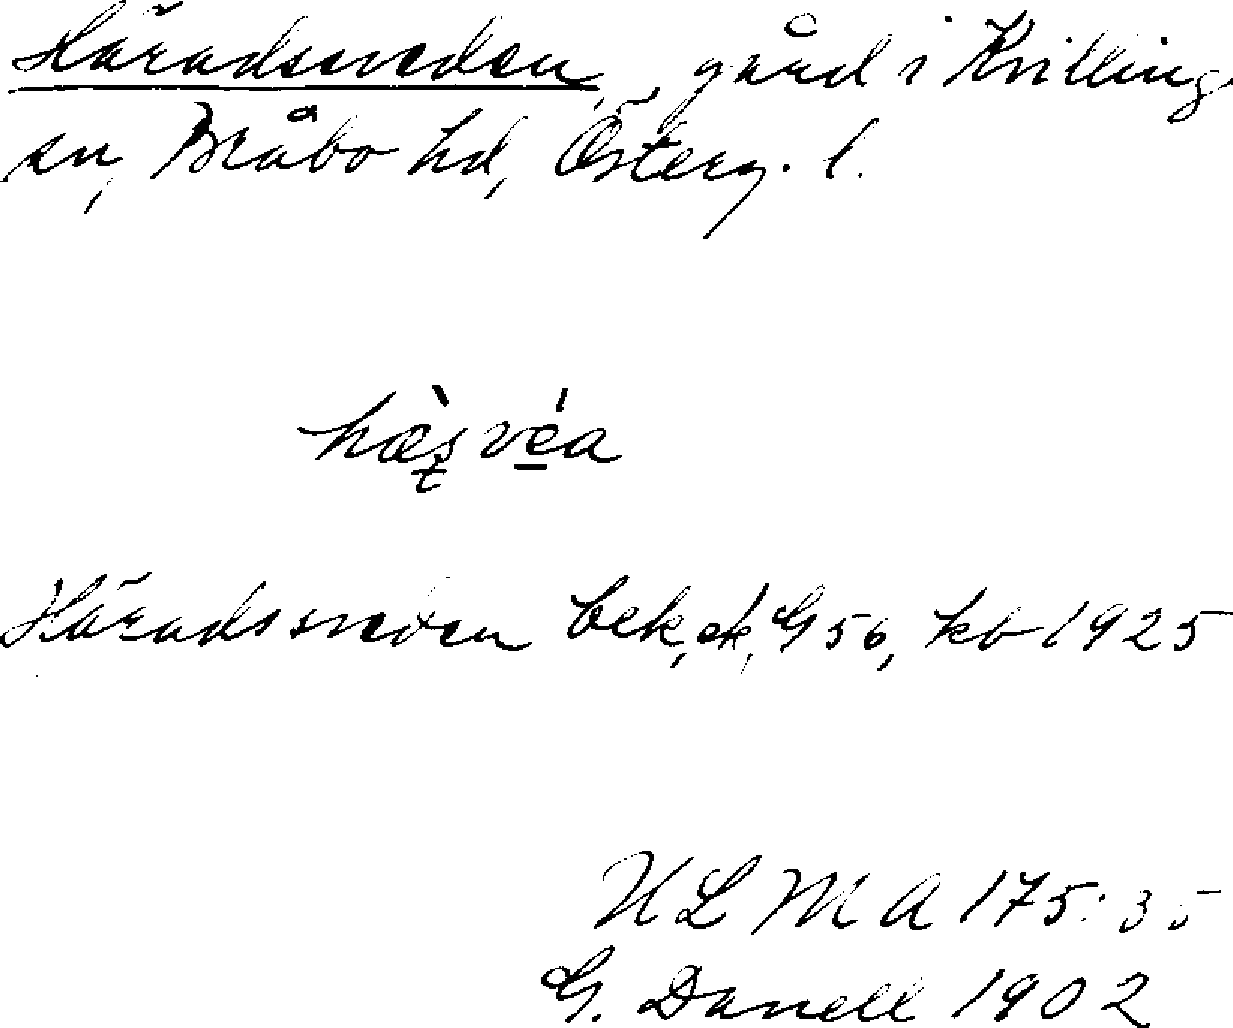 Häradssveden, gård i Kvillinge
sn, Bråbo hd, Österg. l.
Häradssveden bek, ek, G 56, kb 1925
ULMA 175:35
G. Danell 1902